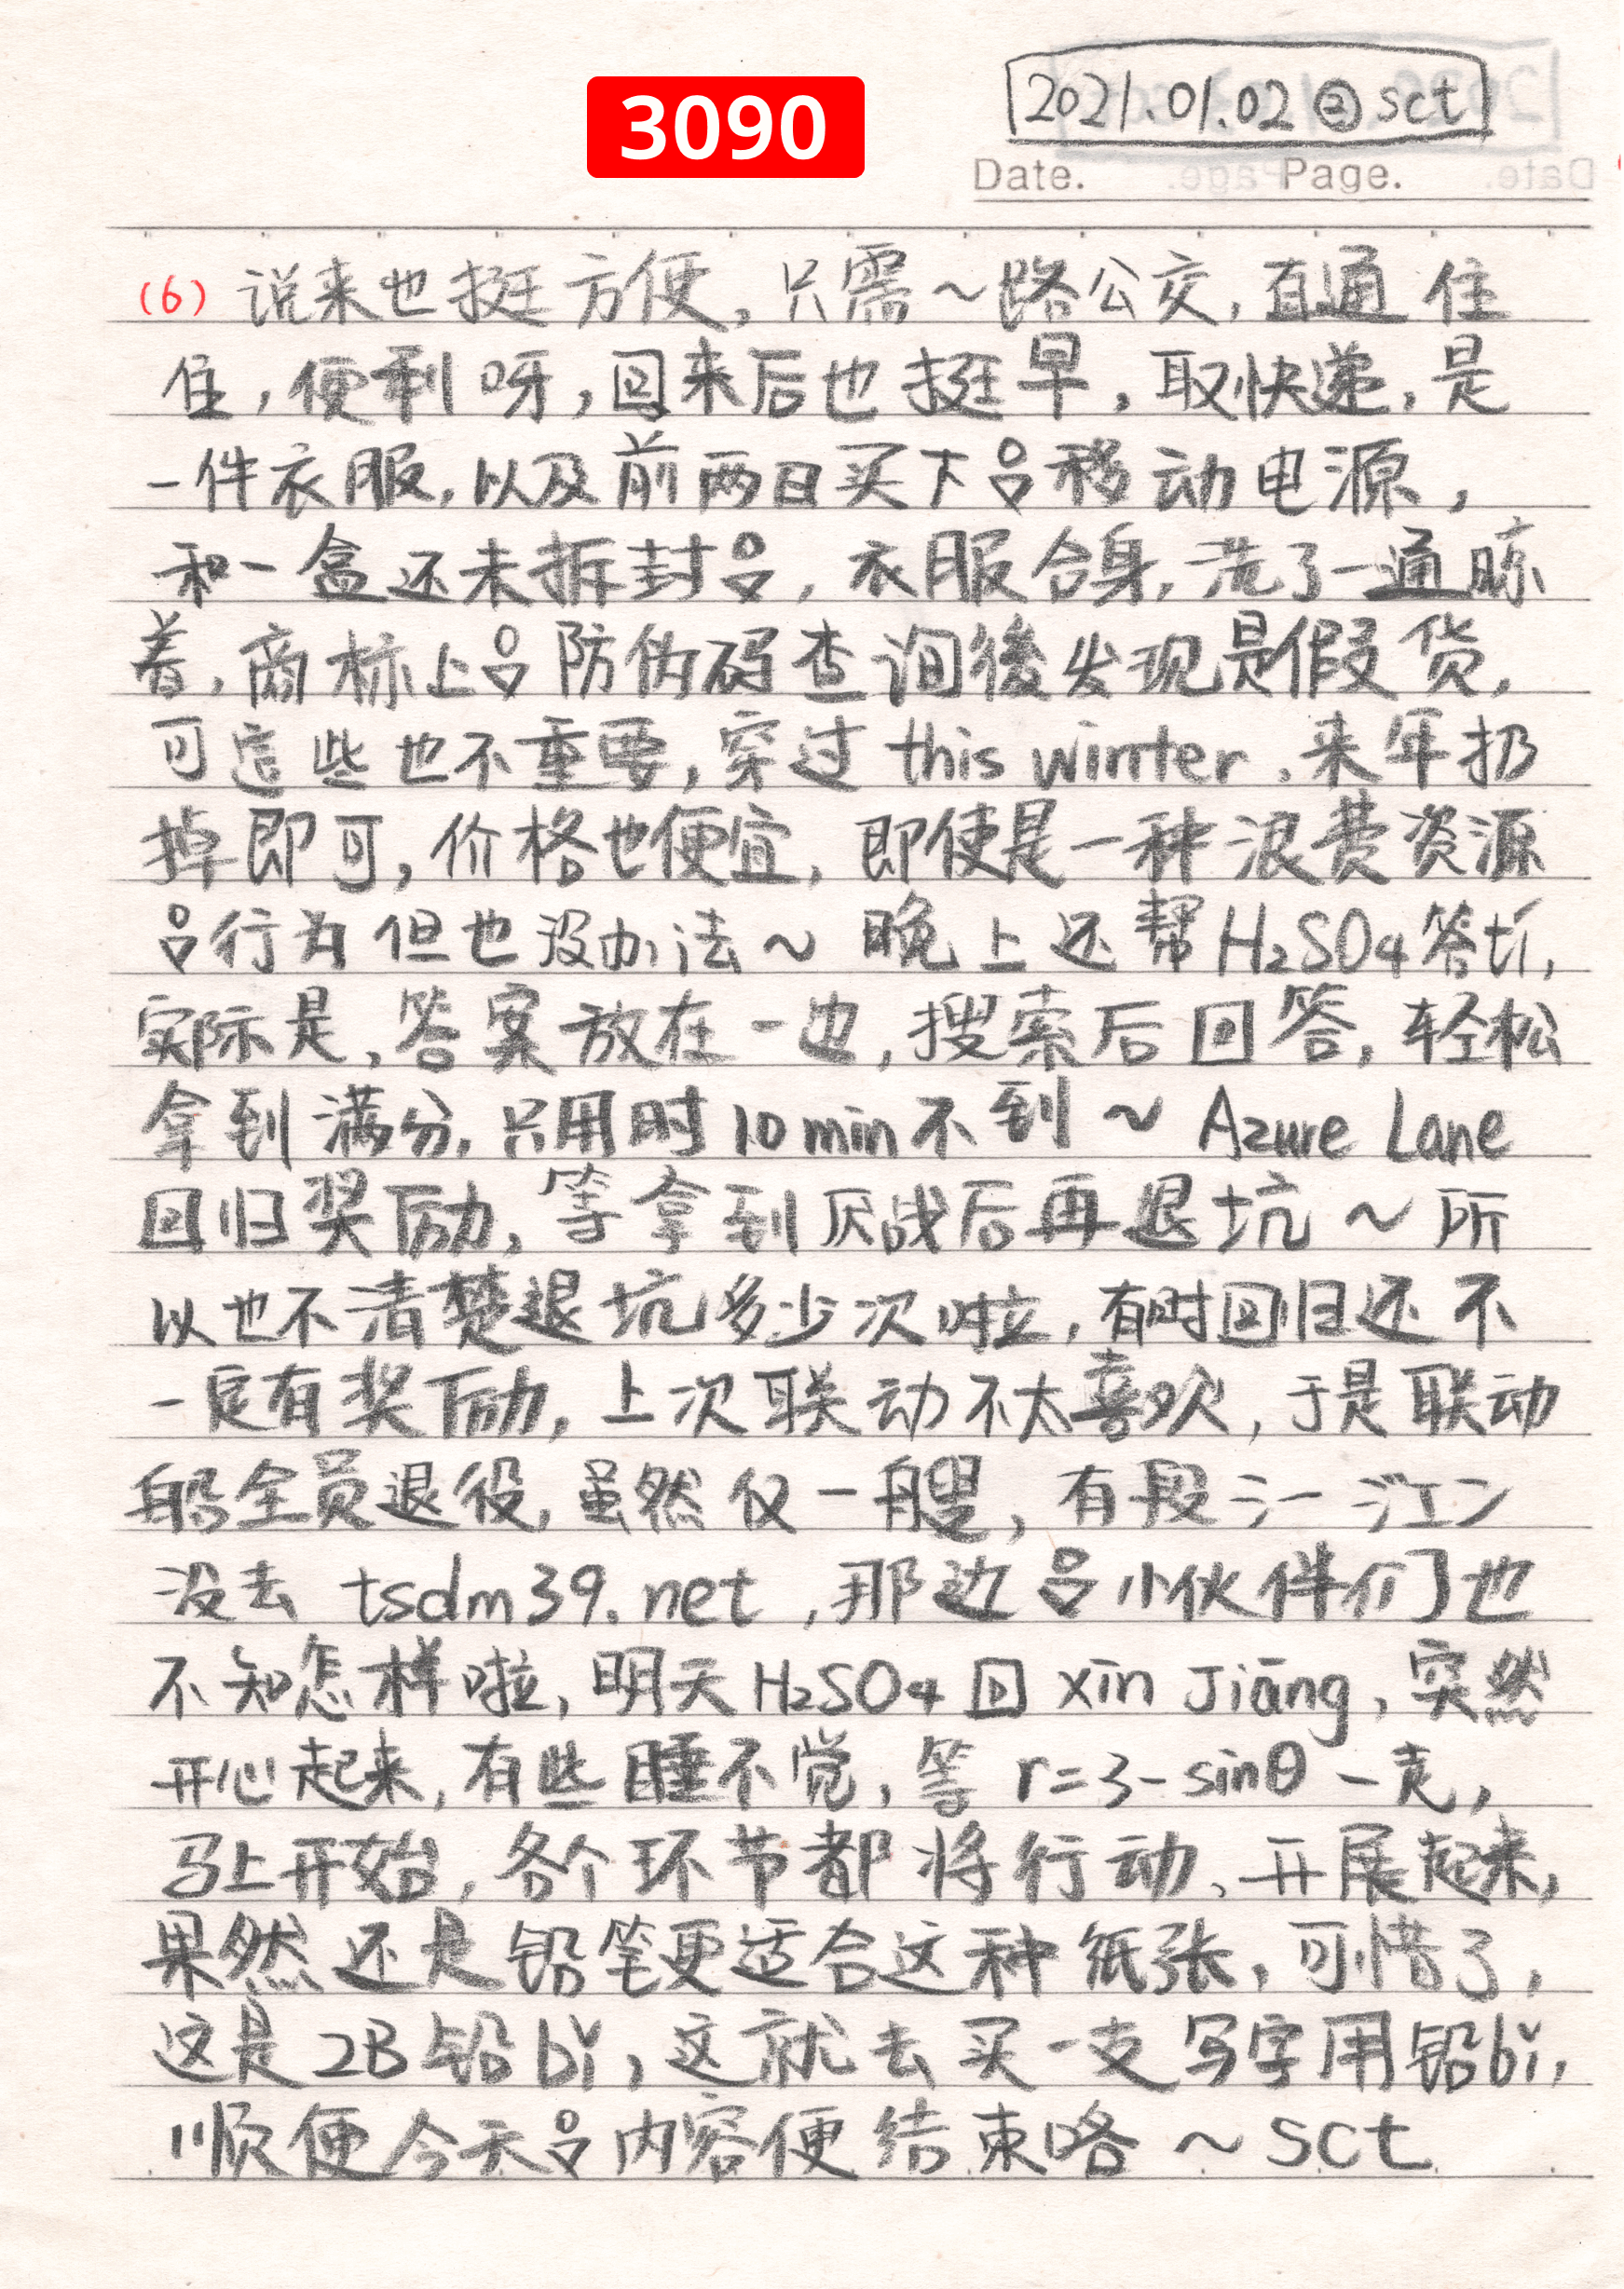 3090
2021.01.02 ② sct
Date. Page.
(6) 说来也挺方便，只需~路公交，直通住
住，便利呀，回来后也挺早，取快递，是
一件衣服，以及前两日买下呂移动电源，
和一盒还未拆封呂，衣服合身，洗了一通晾
着，商标上呂防伪码查询後发现是假货，
可這些也不重要，穿过 this winter，来年扔
掉即可，价格也便宜，即使是一种浪费资源
呂行为但也没办法~ 晚上还帮H₂SO₄答tí，
实际是，答案放在一边，搜索后回答，轻松
拿到满分，只用时10min不到~ Azure Lane
回归奖励，等拿到厌战后再退坑~所
以也不清楚退坑多少次啦，有时回归还不
一定有奖励，上次联动不太喜欢，于是联动
船全员退役，虽然仅一艘，有段シージエン
没去 tsdm39.net，那边呂小伙伴们也
不知怎样啦，明天H₂SO₄回 xīn Jiāng，突然
开心起来，有些睡不觉，等 r=3-sinθ 一走，
马上开始，各个环节都将行动、开展起来，
果然还是铅笔更适合这种纸张，可惜了，
这是2B铅bǐ，这就去买一支写字用铅bǐ，
顺便今天呂内容便结束咯~ sct